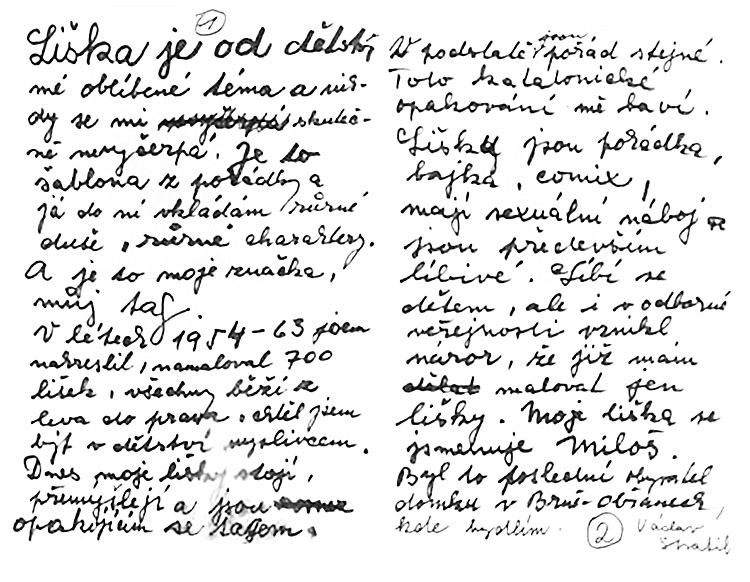 1
Liška je od dětství
mé oblíbené téma a nik-
dy se mi nevyčerpá skuteč-
ně nevyčerpá. Je to
šablona z pohádky a
já do ní vkládám různé
duše, různé charaktery.
A je to moje značka,
můj tag.
V létech 1954-63 jsem
nakreslil, namaloval 700
lišek, všechny běží z
leva do prava, chtěl jsem
být v dětství myslivcem.
Dnes moje lišky stojí,
přemýšlejí a jsou
opakujícím se tagem.
jsou
V podstatě pořád stejné.
Toto katatonické
opakování mě baví.
Lišky jsou pohádka,
bajka, comix,
mají sexuální náboj a
jsou především
líbivé. Líbí se
dětem, ale i v odborné
veřejnosti vznikl
názor, že již mám
dělat malovat jen
lišky. Moje liška se
jmenuje Miloš.
Byl to poslední obyvatel
domku v Brně-Obřanech,
kde bydlím. 2 Václav
Stratil